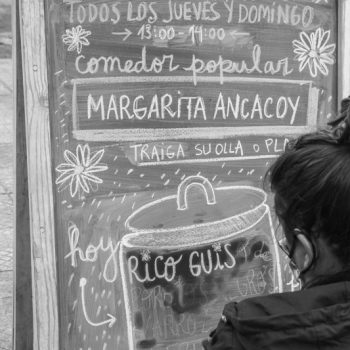 TODOS LOS JUEVES Y DOMINGO
→ 13:00 - 14:00 ←
comedor popular
MARGARITA ANCACOY
TRAIGA SU OLLA O
hoy
RICO GUIS